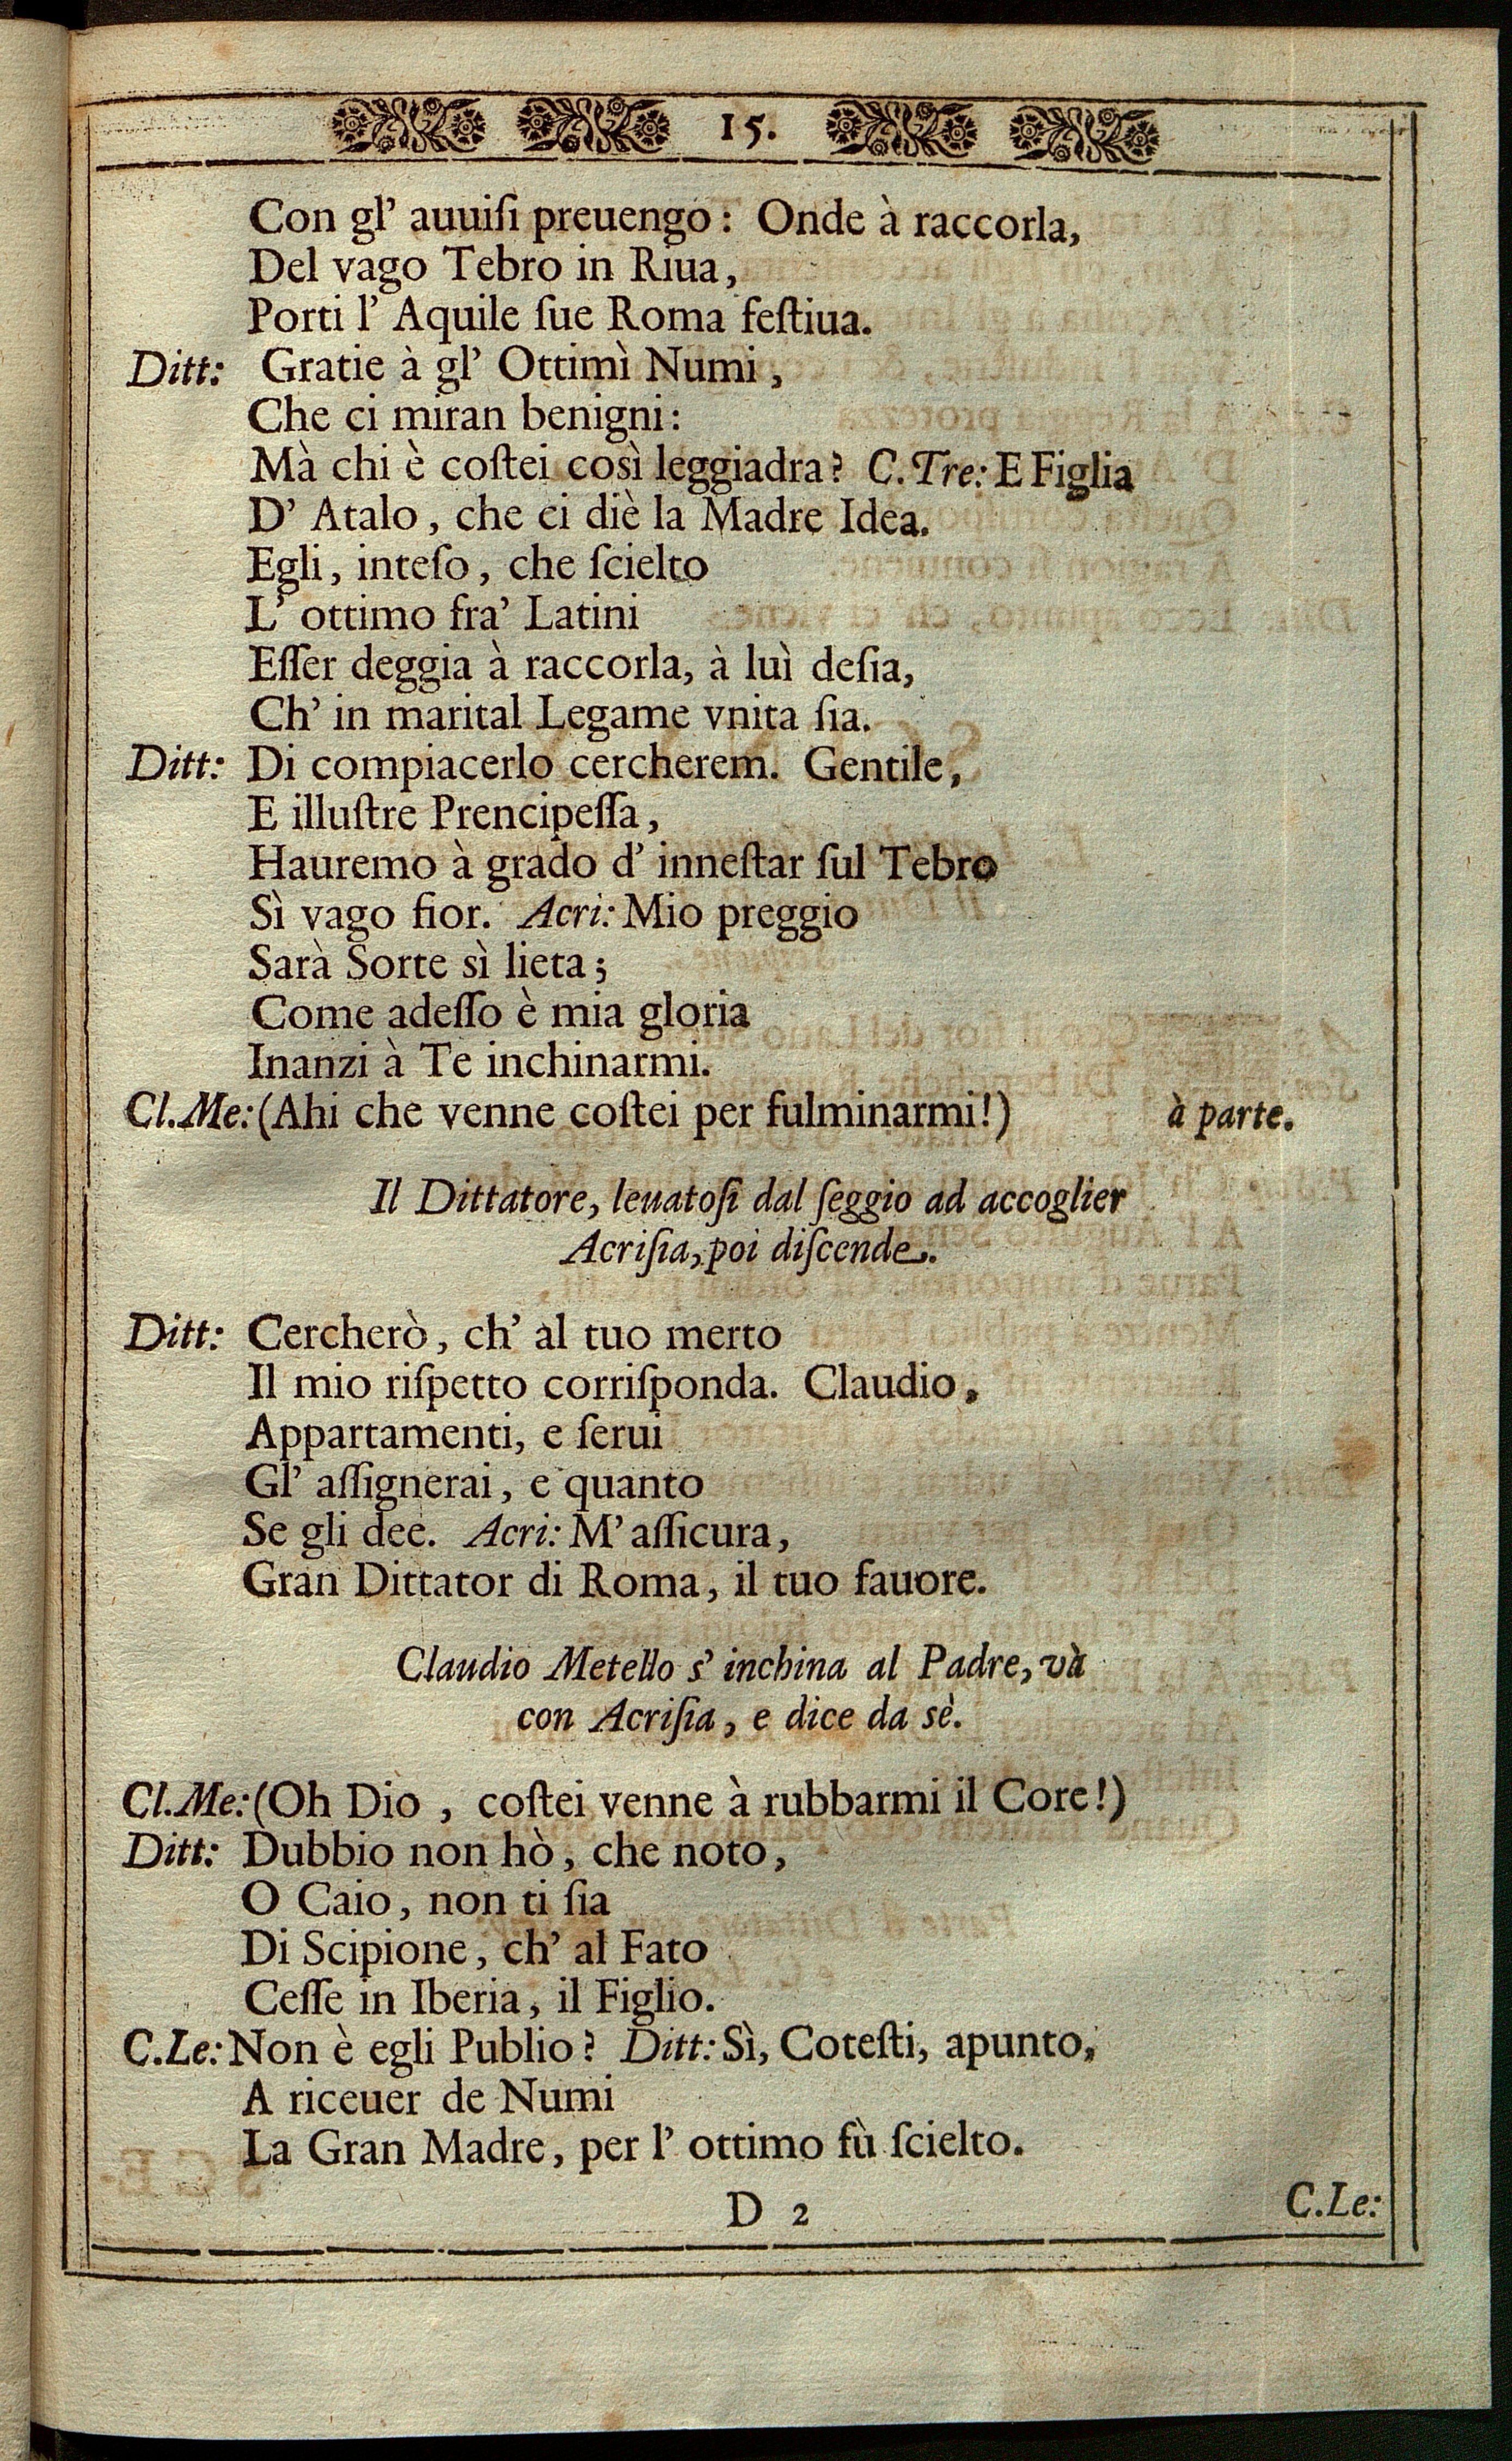 15.
Con gl' auuiſi preuengo: Onde à raccorla,
Del vago Tebro in Riua,
Porti l' Aquile ſue Roma feſtiua.
Ditt: Gratie à gl' Ottimì Numi,
Che ci miran benigni:
Mà chi è coſtei così leggiadra? C.Tre: E Figlia
D' Atalo, che ei diè la Madre Idea.
Egli, inteſo, che ſcielto
L' ottimo fra' Latini
Eſſer deggia à raccorla, à luì deſia,
Ch' in marital Legame vnita ſia.
Ditt: Di compiacerlo cercherem. Gentile,
E illuſtre Prencipeſſa,
Hauremo à grado d' inneſtar ſul Tebro
Sì vago fior. Acri: Mio preggio
Sarà Sorte sì lieta;
Come adeſſo è mia gloria
Inanzi à Te inchinarmi.
Cl.Me: (Ahi che venne coſtei per fulminarmi!) à parte.
Il Dittatore, leuatoſi dal ſeggio ad accoglier
Acriſia, poi diſcende.
Ditt: Cercherò, ch' al tuo merto
Il mio riſpetto corriſponda. Claudio,
Appartamenti, e ſerui
Gl' aſſignerai, e quanto
Se gli dee. Acri: M' aſſicura,
Gran Dittator di Roma, il tuo fauore.
Claudio Metello s' inchina al Padre, và
con Acriſia, e dice da sè.
Cl.Me: (Oh Dio, coſtei venne à rubbarmi il Core!)
Ditt: Dubbio non hò, che noto,
O Caio, non ti ſia
Di Scipione, ch' al Fato
Ceſſe in Iberia, il Figlio.
C.Le: Non è egli Publio? Ditt: Sì, Coteſti, apunto,
A riceuer de Numi
La Gran Madre, per l' ottimo fù ſcielto.
D 2 C.Le: